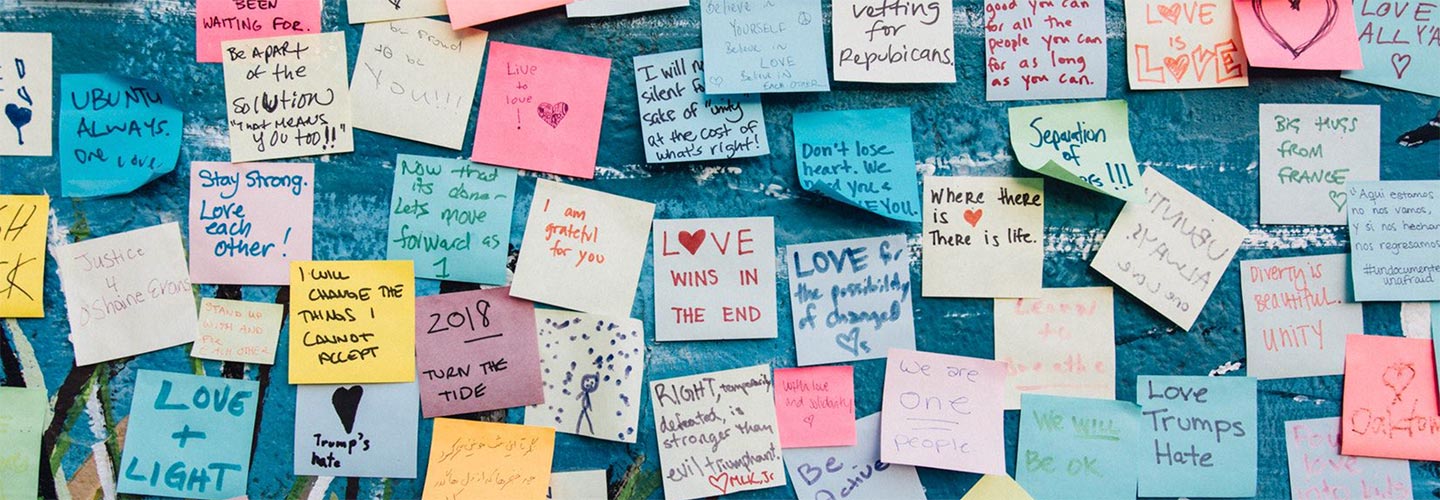 BEEN
WAITING FOR.
BE APART
OF the
SOLUTION
"THAT MEANS
YOU TOO!!"
be proud
to be
YOU!!!
Live
to
love
!
I will n
silent fo
sake of "unity
at the cost of
what's right!
Believe in
YOURSELF
Believe in
LOVE
Believe in
EACH OTHER
vetting
for
Repubicans.
good you can
for all the
people you can
for as long
as you can.
LOVE
IS
LOVE
LOVE
ALL Y'A
UBUNTU
ALWAYS.
one love.
Stay Strong.
Love
each
other!
Now that
its done-
Lets move
forward as
1
I am
grateful
for you
LOVE
WINS IN
THE END
Don't lose
heart. We
you &
YOU.
LOVE for
the possibility
of changed
Where there
is
There is life.
Separation
of
!!!
UBUNTU
ALWAYS.
one love
BIG HUGS
FROM
FRANCE
Aqui estamos
no nos vamos,
Y si nos hechan
nos regresamos
#undocumente
unafraid
Justice
4
STAND UP
WITH AND
FOR
EACH OTHER
I WILL
CHANGE THE
THINGS I
CANNOT
ACCEPT
2018
TURN THE
TIDE
Diverty is
Beautiful.
UNITY
Learn
to
LOVE
+
LIGHT
Trump's
hate
RIGHT, temporarily
defeated, is
stronger than
evil triumphant.
MLK, Jr
with love
and solidarity
We are
one
people
Be
Active
We WILL
Be OK.
Love
Trumps
Hate